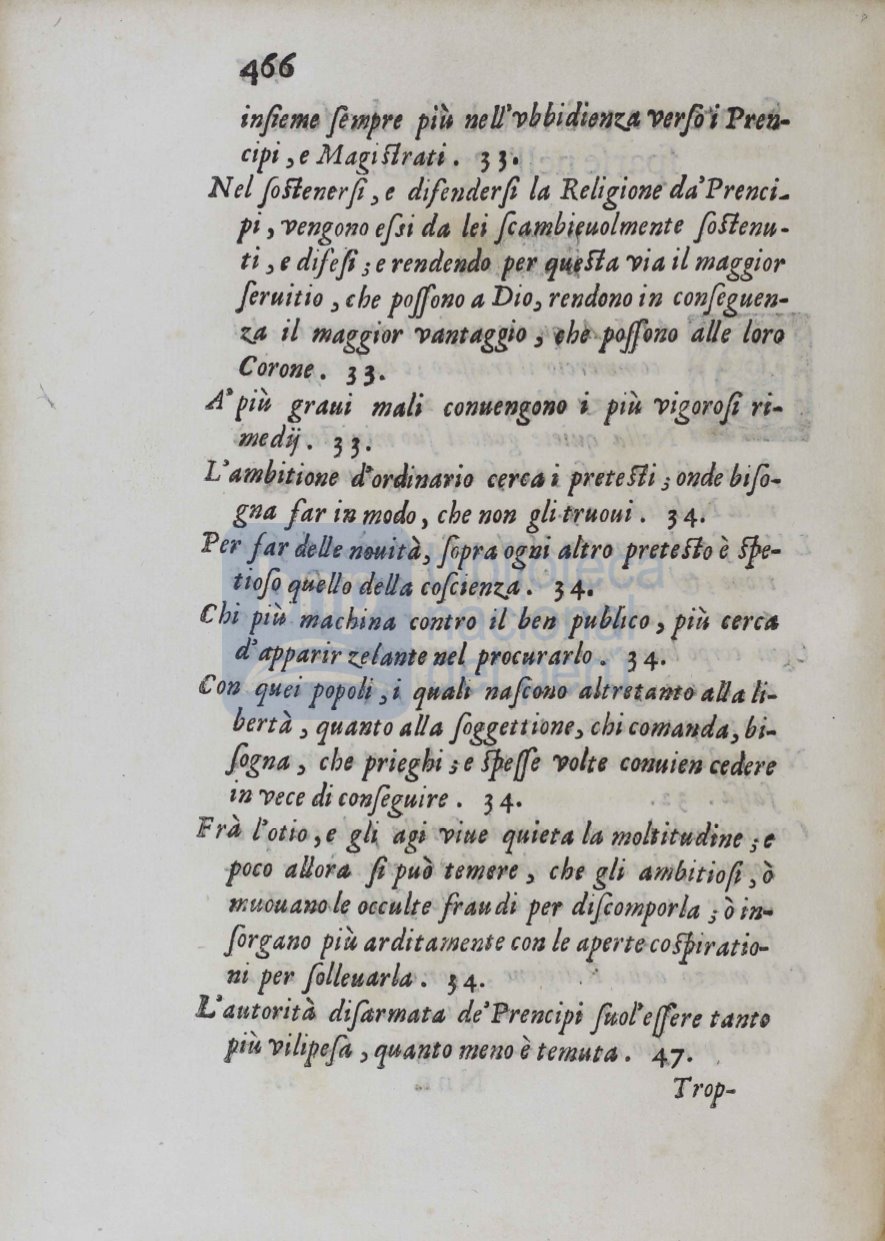 466
inſieme ſempre più nell'vbbidienza verſo i Pren-
cipi, e Magiſtrati. 33.
Nel ſoſtenerſi, e difenderſi la Religione da'Prenci-
pi, vengono eſsi da lei ſcambieuolmente ſoſtenu-
ti, e difeſi; e rendendo per queſta via il maggior
ſeruitio, che poſſono a Dio, rendono in conſeguen-
za il maggior vantaggio, che poſſono alle loro
Corone. 33.
A' più graui mali conuengono i più vigoroſi ri-
medij. 33.
L'ambitione d'ordinario cerca i preteſti; onde biſo-
gna far in modo, che non gli truoui. 34.
Per far delle nouità, ſopra ogni altro preteſto è ſpe-
tioſo quello della coſcienza. 34.
Chi più machina contro il ben publico, più cerca
d'apparir zelante nel procurarlo. 34.
Con quei popoli, i quali naſcono altretanto alla li-
bertà, quanto alla ſoggettione, chi comanda, bi-
ſogna, che prieghi; e ſpeſſe volte conuien cedere
in vece di conſeguire. 34.
Frà l'otio, e gli agi viue quieta la moltitudine; e
poco allora ſi può temere, che gli ambitioſi, ò
muouano le occulte fraudi per diſcomporla; ò in-
ſorgano più arditamente con le aperte coſpiratio-
ni per ſolleuarla. 34.
L'autorità diſarmata de'Prencipi ſuol'eſſere tanto
più vilipeſa, quanto meno è temuta. 47.
Trop-